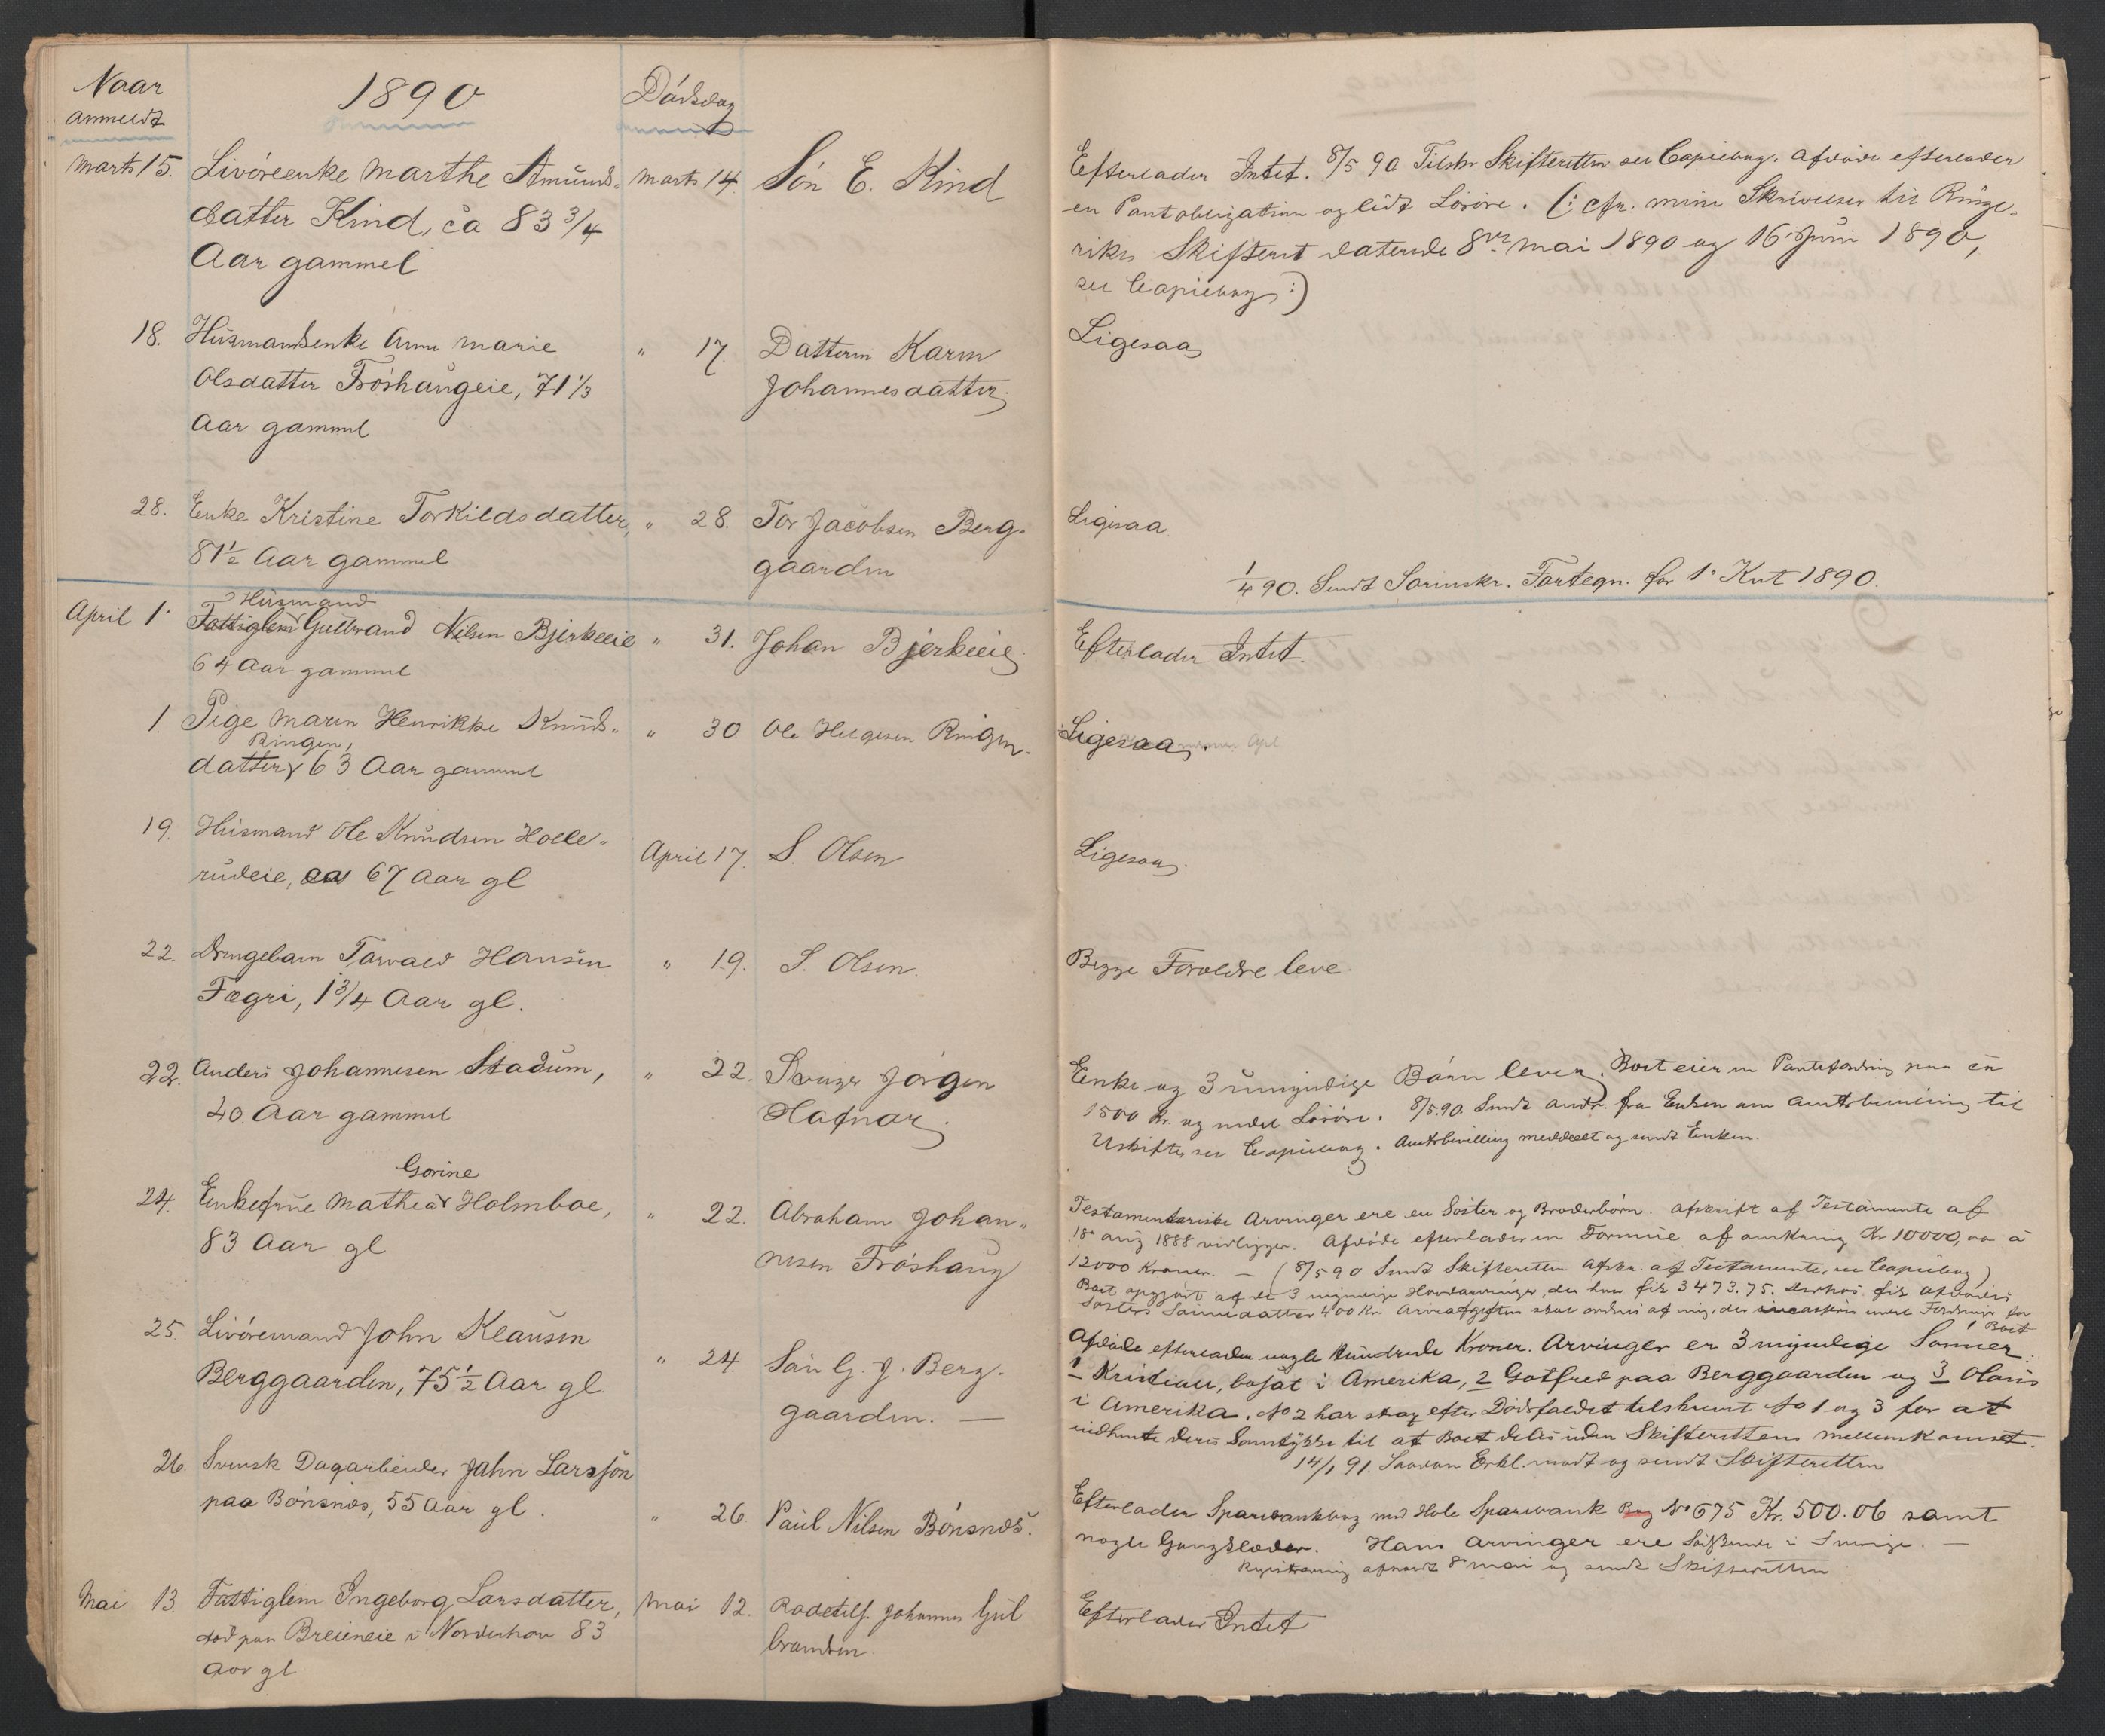 Naar
anmeldt
1890
Dødsdag
Marts 15. Livøreenke Marthe Amunds- Marts 14. Søn E. Kind
datter Kind, ca 83 3/4
Aar gammel
Efterlader Intet. 8/5 90 Tilskr. Skifteretten see Copiebog. Afdøde efterlader
en Pantobligation og lidt Løsøre. (: cfr. mine Skrivelser til Ringe-
rikes Skifteret daterede 8de Mai 1890 og 16 Juni 1890,
see Copiebog :)
18. Husmandsenke Anne Marie " 17. Datteren Karen
Olsdatter Frøshaugeie, 71 1/3 Johannesdatter.
Aar gammel
Ligesaa
28. Enke Kristine Torkildsdatter, " 28. Tor Jacobsen Berg-
81 1/2 Aar gammel gaarden
Ligesaa.
1/4 90. Sendt Sorenskr. Fortegn. for 1. Kvt 1890.
Husmand
April 1. Fattiglem Gulbrand Nilsen Bjerkeeie " 31. Johan Bjerkeeie
64 Aar gammel
Efterlader Intet.
1. Pige Maren Henrikke Knuds- " 30 Ole Helgesen Ringen.
Ringen,
datter 63 Aar gammel
Ligesaa.
19. Husmand Ole Knudsen Holle-
rudeie, ca 67 Aar gl
April 17. S. Olsen
Ligesaa.
22. Drengebarn Torvald Hansen " 19. S. Olsen.
Fægri, 1 3/4 Aar gl.
Begge Forældre leve.
22. Anders Johannesen Stadum, " 22. Svoger Jørgen
40 Aar gammel Hafnor.
Enke og 3 umyndige Børn lever. Boet eier en Pantefordring paa ca
1500 Kr. og endel Løsøre. 8/5.90. Sendt Andr. fra Enken om Amtsbevilling til
Uskifte, see Copiebog. Amtsbevilling meddeelt og sendt Enken.
Gorine
24. Enkefrue Mathea Holmboe, " 22. Abraham Johan-
83 Aar gl nesen Frøshaug
Testamentariske Arvinger ere en Søster og Broderbørn. Afskrift af Testamente af
18 Aug 1888 vedligger. Afdøde efterlader en Formue af omkring Kr 10000,00 à
12000 Kroner. — (8/5 90 Sendt Skifteretten Afskr. af Testamente, see Copiebog)
Boet opgjort af de 3 myndige Hovedarvinger, der hver fik 3473.75. Derhos fik Afdødes
Søsters Sønnedatter 400 Kr. Arveafgiften skal ordnes af mig, der endel Fordringer for
Boet
25. Livøremand John Klausen
Berggaarden, 75 1/2 Aar gl. " 24 Søn G. J. Berg-
gaarden. —
Afdøde efterlader nogle hundrede Kroner. Arvinger er 3 myndige Sønner:
1 Kristian, bosat i Amerika, 2 Gotfred paa Berggaarden og 3 Olaus
i Amerika. No 2 har strax efter Dødsfaldet tilskrevet No 1 og 3 for at
indhente deres Samtykke til at Boet deles uden Skifterettens mellemkomst.
14/1 91. Saadan Erkl. modt og sendt Skifteretten
26. Svensk Dagarbeider Jahn Larsson
paa Bønsnæs, 55 Aar gl. " 26. Paul Nilsen Bønsnæs.
Efterlader Sparebankbog med Hole Sparebank Bog No 675 Kr. 500.06 samt
nogle Gangklæder. Hans Arvinger ere Sødskende i Sverige. —
Registrering afholdt 8 Mai og sendt Skifteretten
Mai 13. Fattiglem Ingeborg Larsdatter, Mai 12. Rodetilf. Johannes Gul
død paa Breieneie i Norderhov 83 brandsen.
Aar gl
Efterlader Intet